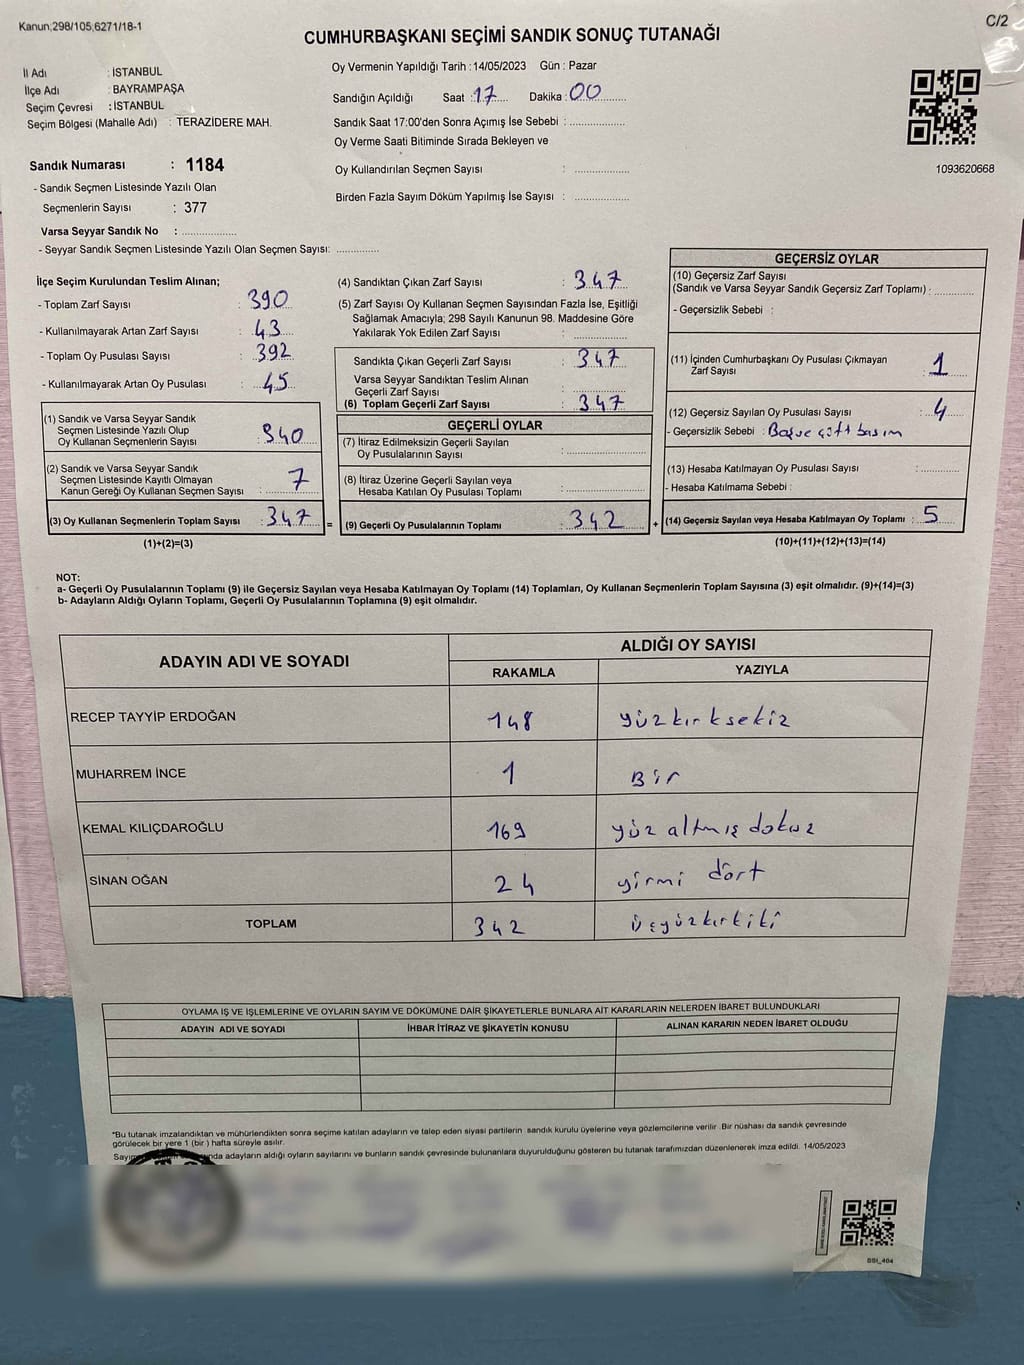 Kanun;298/105;6271/18-1
C/2
CUMHURBAŞKANI SEÇİMİ SANDIK SONUÇ TUTANAĞI
İl Adı : İSTANBUL
İlçe Adı : BAYRAMPAŞA
Seçim Çevresi : İSTANBUL
Seçim Bölgesi (Mahalle Adı) : TERAZİDERE MAH.
Oy Vermenin Yapıldığı Tarih :14/05/2023 Gün : Pazar
Sandığın Açıldığı Saat :17 Dakika :00
Sandık Saat 17:00'den Sonra Açımış İse Sebebi :
Oy Verme Saati Bitiminde Sırada Bekleyen ve
Oy Kullandırılan Seçmen Sayısı :
Birden Fazla Sayım Döküm Yapılmış İse Sayısı :
1093620668
Sandık Numarası : 1184
- Sandık Seçmen Listesinde Yazılı Olan
Seçmenlerin Sayısı : 377
Varsa Seyyar Sandık No :
- Seyyar Sandık Seçmen Listesinde Yazılı Olan Seçmen Sayısı:
İlçe Seçim Kurulundan Teslim Alınan;
- Toplam Zarf Sayısı : 390
- Kullanılmayarak Artan Zarf Sayısı : 43
- Toplam Oy Pusulası Sayısı : 392
- Kullanılmayarak Artan Oy Pusulası : 45
(1) Sandık ve Varsa Seyyar Sandık
Seçmen Listesinde Yazılı Olup
Oy Kullanan Seçmenlerin Sayısı : 340
(2) Sandık ve Varsa Seyyar Sandık
Seçmen Listesinde Kayıtlı Olmayan
Kanun Gereği Oy Kullanan Seçmen Sayısı : 7
(3) Oy Kullanan Seçmenlerin Toplam Sayısı : 347
(1)+(2)=(3)
(4) Sandıktan Çıkan Zarf Sayısı : 347
(5) Zarf Sayısı Oy Kullanan Seçmen Sayısından Fazla İse, Eşitliği
Sağlamak Amacıyla; 298 Sayılı Kanunun 98. Maddesine Göre
Yakılarak Yok Edilen Zarf Sayısı :
Sandıkta Çıkan Geçerli Zarf Sayısı : 347
Varsa Seyyar Sandıktan Teslim Alınan
Geçerli Zarf Sayısı :
(6) Toplam Geçerli Zarf Sayısı : 347
GEÇERLİ OYLAR
(7) İtiraz Edilmeksizin Geçerli Sayılan
Oy Pusulalarının Sayısı :
(8) İtiraz Üzerine Geçerli Sayılan veya
Hesaba Katılan Oy Pusulası Toplamı :
= (9) Geçerli Oy Pusulalarının Toplamı : 342 +
GEÇERSİZ OYLAR
(10) Geçersiz Zarf Sayısı
(Sandık ve Varsa Seyyar Sandık Geçersiz Zarf Toplamı) :
- Geçersizlik Sebebi :
(11) İçinden Cumhurbaşkanı Oy Pusulası Çıkmayan
Zarf Sayısı : 1
(12) Geçersiz Sayılan Oy Pusulası Sayısı : 4
- Geçersizlik Sebebi : Boş ve çift basım
(13) Hesaba Katılmayan Oy Pusulası Sayısı :
- Hesaba Katılmama Sebebi :
(14) Geçersiz Sayılan veya Hesaba Katılmayan Oy Toplamı : 5
(10)+(11)+(12)+(13)=(14)
NOT:
a- Geçerli Oy Pusulalarının Toplamı (9) ile Geçersiz Sayılan veya Hesaba Katılmayan Oy Toplamı (14) Toplamları, Oy Kullanan Seçmenlerin Toplam Sayısına (3) eşit olmalıdır. (9)+(14)=(3)
b- Adayların Aldığı Oyların Toplamı, Geçerli Oy Pusulalarının Toplamına (9) eşit olmalıdır.
ADAYIN ADI VE SOYADI
ALDIĞI OY SAYISI
RAKAMLA YAZIYLA
RECEP TAYYİP ERDOĞAN 148 yüzkırksekiz
MUHARREM İNCE 1 Bir
KEMAL KILIÇDAROĞLU 169 yüz altmış dokuz
SİNAN OĞAN 24 yirmi dört
TOPLAM 342 üçyüzkırkiki
OYLAMA İŞ VE İŞLEMLERİNE VE OYLARIN SAYIM VE DÖKÜMÜNE DAİR ŞİKAYETLERLE BUNLARA AİT KARARLARIN NELERDEN İBARET BULUNDUKLARI
ADAYIN ADI VE SOYADI İHBAR İTİRAZ VE ŞİKAYETİN KONUSU ALINAN KARARIN NEDEN İBARET OLDUĞU
*Bu tutanak imzalandıktan ve mühürlendikten sonra seçime katılan adayların ve talep eden siyasi partilerin sandık kurulu üyelerine veya gözlemcilerine verilir. Bir nüshası da sandık çevresinde
görülecek bir yere 1 (bir) hafta süreyle asılır.
adayların aldığı oyların sayılarını ve bunların sandık çevresinde bulunanlara duyurulduğunu gösteren bu tutanak tarafımızdan düzenlenerek imza edildi. 14/05/2023